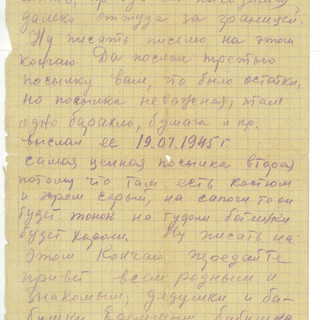 далеко от туда за границей.
Ну писать письмо на этом
кончаю. Да послал третью
посылку вам, что было остатки,
но посылка неважная, там
одно барахло, бумага и пр.
выслал её 19.07.1945 г
самая ценная посылка вторая
потому что там есть костюм
и хром серый, на сапоги
будет на батишки
будет хорош. Ну писать на
этом кончаю, передайте
привет всем родным и
знакомым, дядушки и ба-
бушки